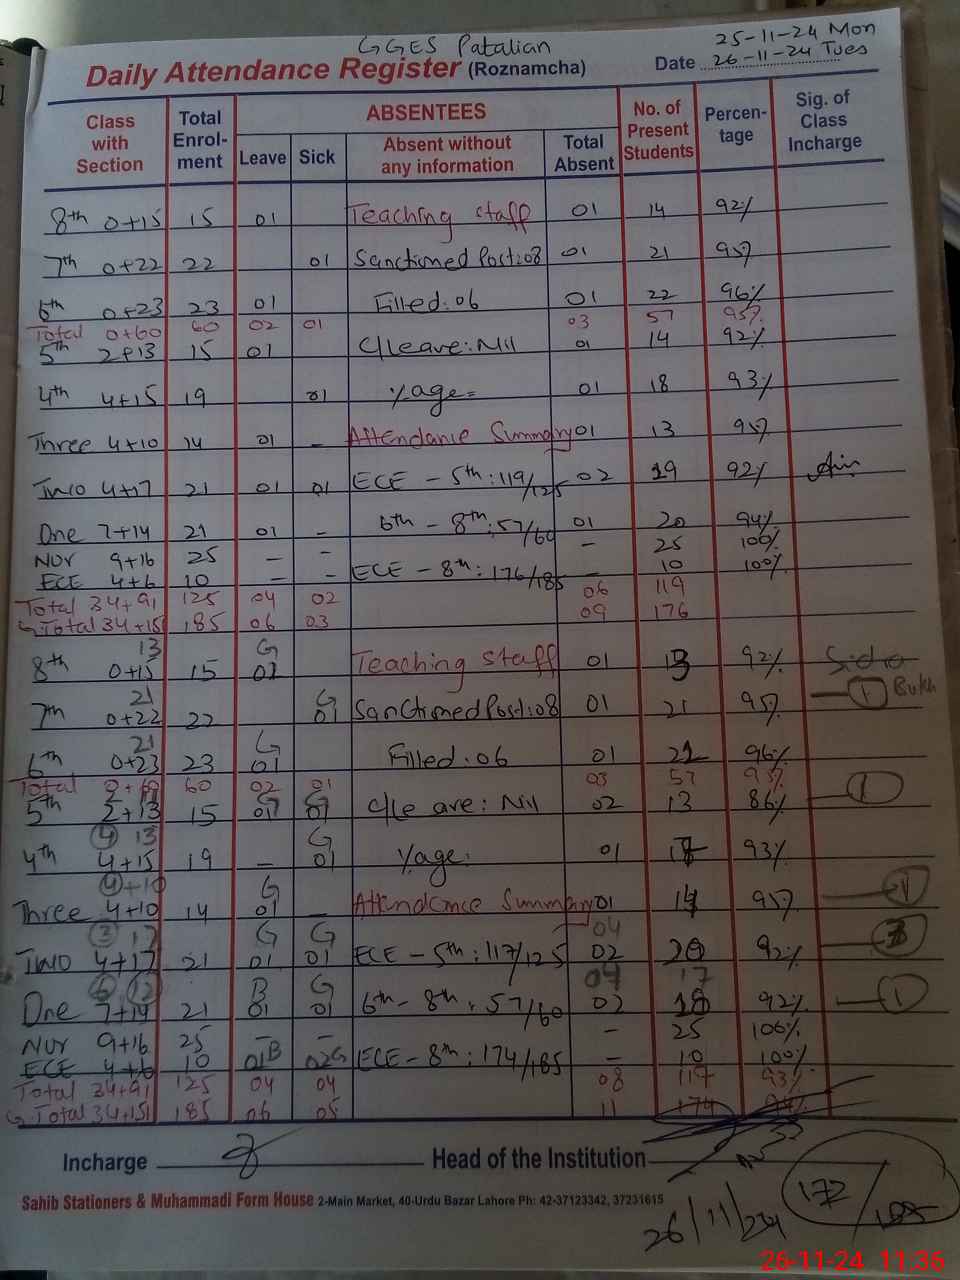 GGES Patalian
25-11-24 Mon
Daily Attendance Register (Roznamcha) Date 26-11-24 Tues
Class with Section Total Enrol-ment ABSENTEES No. of Present Students Percen-tage Sig. of Class Incharge
Leave Sick Absent without any information Total Absent
8th 0+15 15 01 Teaching staff 01 14 92%
7th 0+22 22 01 Sanctioned Post:08 01 21 95%
6th 0+23 23 01 Filled:06 01 22 96%
Total 0+60 60 02 01 03 57 95%
5th 2+13 15 01 C/leave:Nil 01 14 92%
4th 4+15 19 01 %age= 01 18 93%
Three 4+10 14 01 - Attendance Summary 01 13 95%
Two 4+17 21 01 01 ECE - 5th:119/125 02 19 92%
One 7+14 21 01 - 6th - 8th:57/60 01 20 94%
Nur 9+16 25 - - - 25 100%
ECE 4+6 10 - - ECE - 8th:176/185 - 10 100%
Total 34+91 125 04 02 06 119
G.Total 34+151 185 06 03 09 176
13 G
8th 0+15 15 01 Teaching staff 01 13 92%
21 G
7th 0+22 22 01 Sanctioned Post:08 01 21 95% 1
21 G
6th 0+23 23 01 Filled:06 01 96%
Total 0+60 60 02 01 03 57 95%
G G
5th 2+13 15 01 01 C/leave:Nil 02 13 86% 1
4 13 G
4th 4+15 19 - 01 %age: 01 93%
4+10 G
Three 4+10 14 01 - Attendance Summary 01 14 95% 1
3 17 G G 04
Two 4+17 21 01 01 ECE - 5th:117/125 02 20 92% 3
6 12 B G 04 17
One 7+14 21 01 01 6th - 8th:57/60 02 18 92% 1
Nur 9+16 25 - - - 25 100%
ECE 4+6 10 01B 02G ECE - 8th:174/185 - 10 100%
Total 34+91 125 04 04 08 117 93%
G.Total 34+151 185 06 05 11 174 94%
Incharge Head of the Institution
172/185
Sahib Stationers & Muhammadi Form House 2-Main Market, 40-Urdu Bazar Lahore Ph: 42-37123342, 37231615
26/11/24
26-11-24 11:36